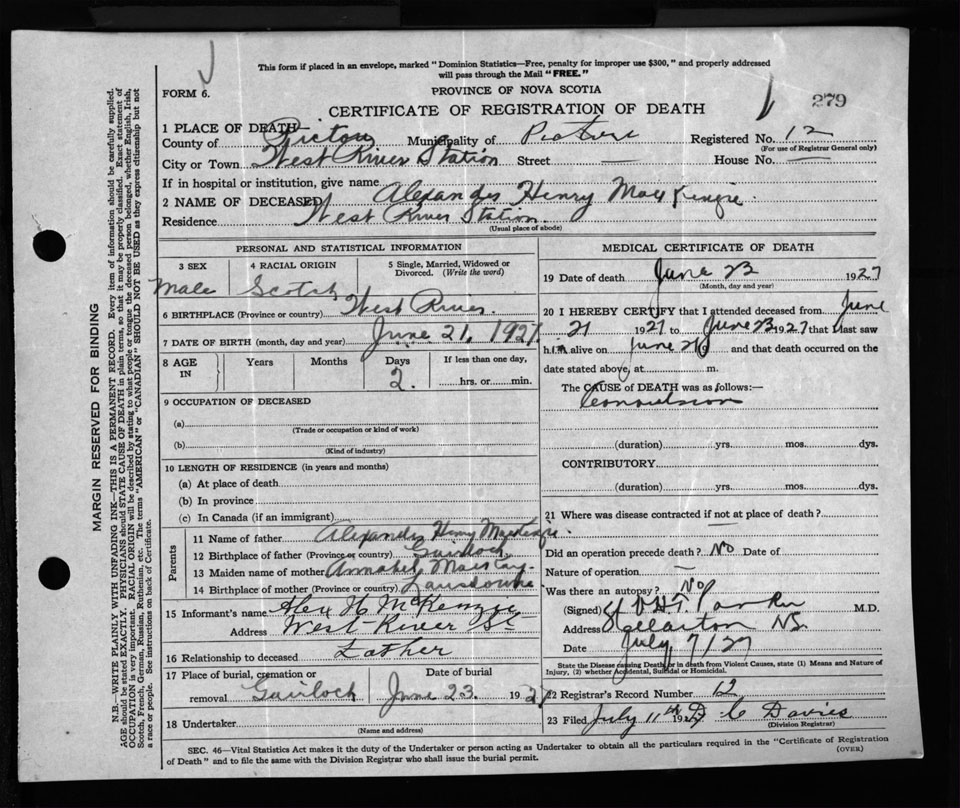 This form if placed in an envelope, marked "Dominion Statistics—Free, penalty for improper use $300," and properly addressed
will pass through the Mail "FREE."
FORM 6.
PROVINCE OF NOVA SCOTIA
279
CERTIFICATE OF REGISTRATION OF DEATH
1 PLACE OF DEATH
County of Pictou Municipality of Pictou Registered No. 12
(For use of Registrar General only)
City or Town West River Station Street — House No. —
If in hospital or institution, give name
2 NAME OF DECEASED Alexander Henry MacKenzie
Residence West River Station
(Usual place of abode)
PERSONAL AND STATISTICAL INFORMATION
3 SEX 4 RACIAL ORIGIN 5 Single, Married, Widowed or
Divorced. (Write the word)
Male Scotch
6 BIRTHPLACE (Province or country) West River.
7 DATE OF BIRTH (month, day and year) June 21, 1927.
8 AGE IN Years Months Days If less than one day,
2. hrs. or min.
9 OCCUPATION OF DECEASED
(a)
(Trade or occupation or kind of work)
(b)
(Kind of industry)
10 LENGTH OF RESIDENCE (in years and months)
(a) At place of death
(b) In province
(c) In Canada (if an immigrant)
Parents
11 Name of father Alexander Henry MacKenzie.
12 Birthplace of father (Province or country) Gairloch
13 Maiden name of mother Annabel
14 Birthplace of mother (Province or country) Lansdowne
15 Informant's name Alex H McKenzie
Address West River St
16 Relationship to deceased Father
17 Place of burial, cremation or Date of burial
removal Gairloch June 23. 1927
18 Undertaker
(Name and address)
MEDICAL CERTIFICATE OF DEATH
19 Date of death June 23 1927
(Month, day and year)
20 I HEREBY CERTIFY that I attended deceased from June
21 1927 to June 23 1927 that I last saw
him alive on June and that death occurred on the
date stated above, at m.
The CAUSE of DEATH was as follows:—
Convulsion
(duration) yrs. mos. dys.
CONTRIBUTORY
(duration) yrs. mos. dys.
21 Where was disease contracted if not at place of death?
Did an operation precede death? No Date of
Nature of operation —
Was there an autopsy? No
(Signed) M.D.
Address Stellarton NS.
Date July 7/27
State the Disease causing Death, or in death from Violent Causes, state (1) Means and Nature of
Injury, (2) whether Accidental, Suicidal or Homicidal.
22 Registrar's Record Number 12
23 Filed July 11th 1927 D C Davies
(Division Registrar)
SEC. 46—Vital Statistics Act makes it the duty of the Undertaker or person acting as Undertaker to obtain all the particulars required in the "Certificate of Registration
of Death" and to file the same with the Division Registrar who shall issue the burial permit. (OVER)
MARGIN RESERVED FOR BINDING
N.B.—WRITE PLAINLY WITH UNFADING INK—THIS IS A PERMANENT RECORD. Every item of information should be carefully supplied.
AGE should be stated EXACTLY. PHYSICIANS should STATE CAUSE OF DEATH in plain terms, so that it may be properly classified. Exact statement of
OCCUPATION is very important. RACIAL ORIGIN will be described by stating to what people or tongue the deceased person belonged, whether English, Irish,
Scotch, French, German, Russian, Ruthenian, etc. The terms "AMERICAN" or "CANADIAN" SHOULD NOT BE USED as they express citizenship but not
a race or people. See instructions on back of Certificate.